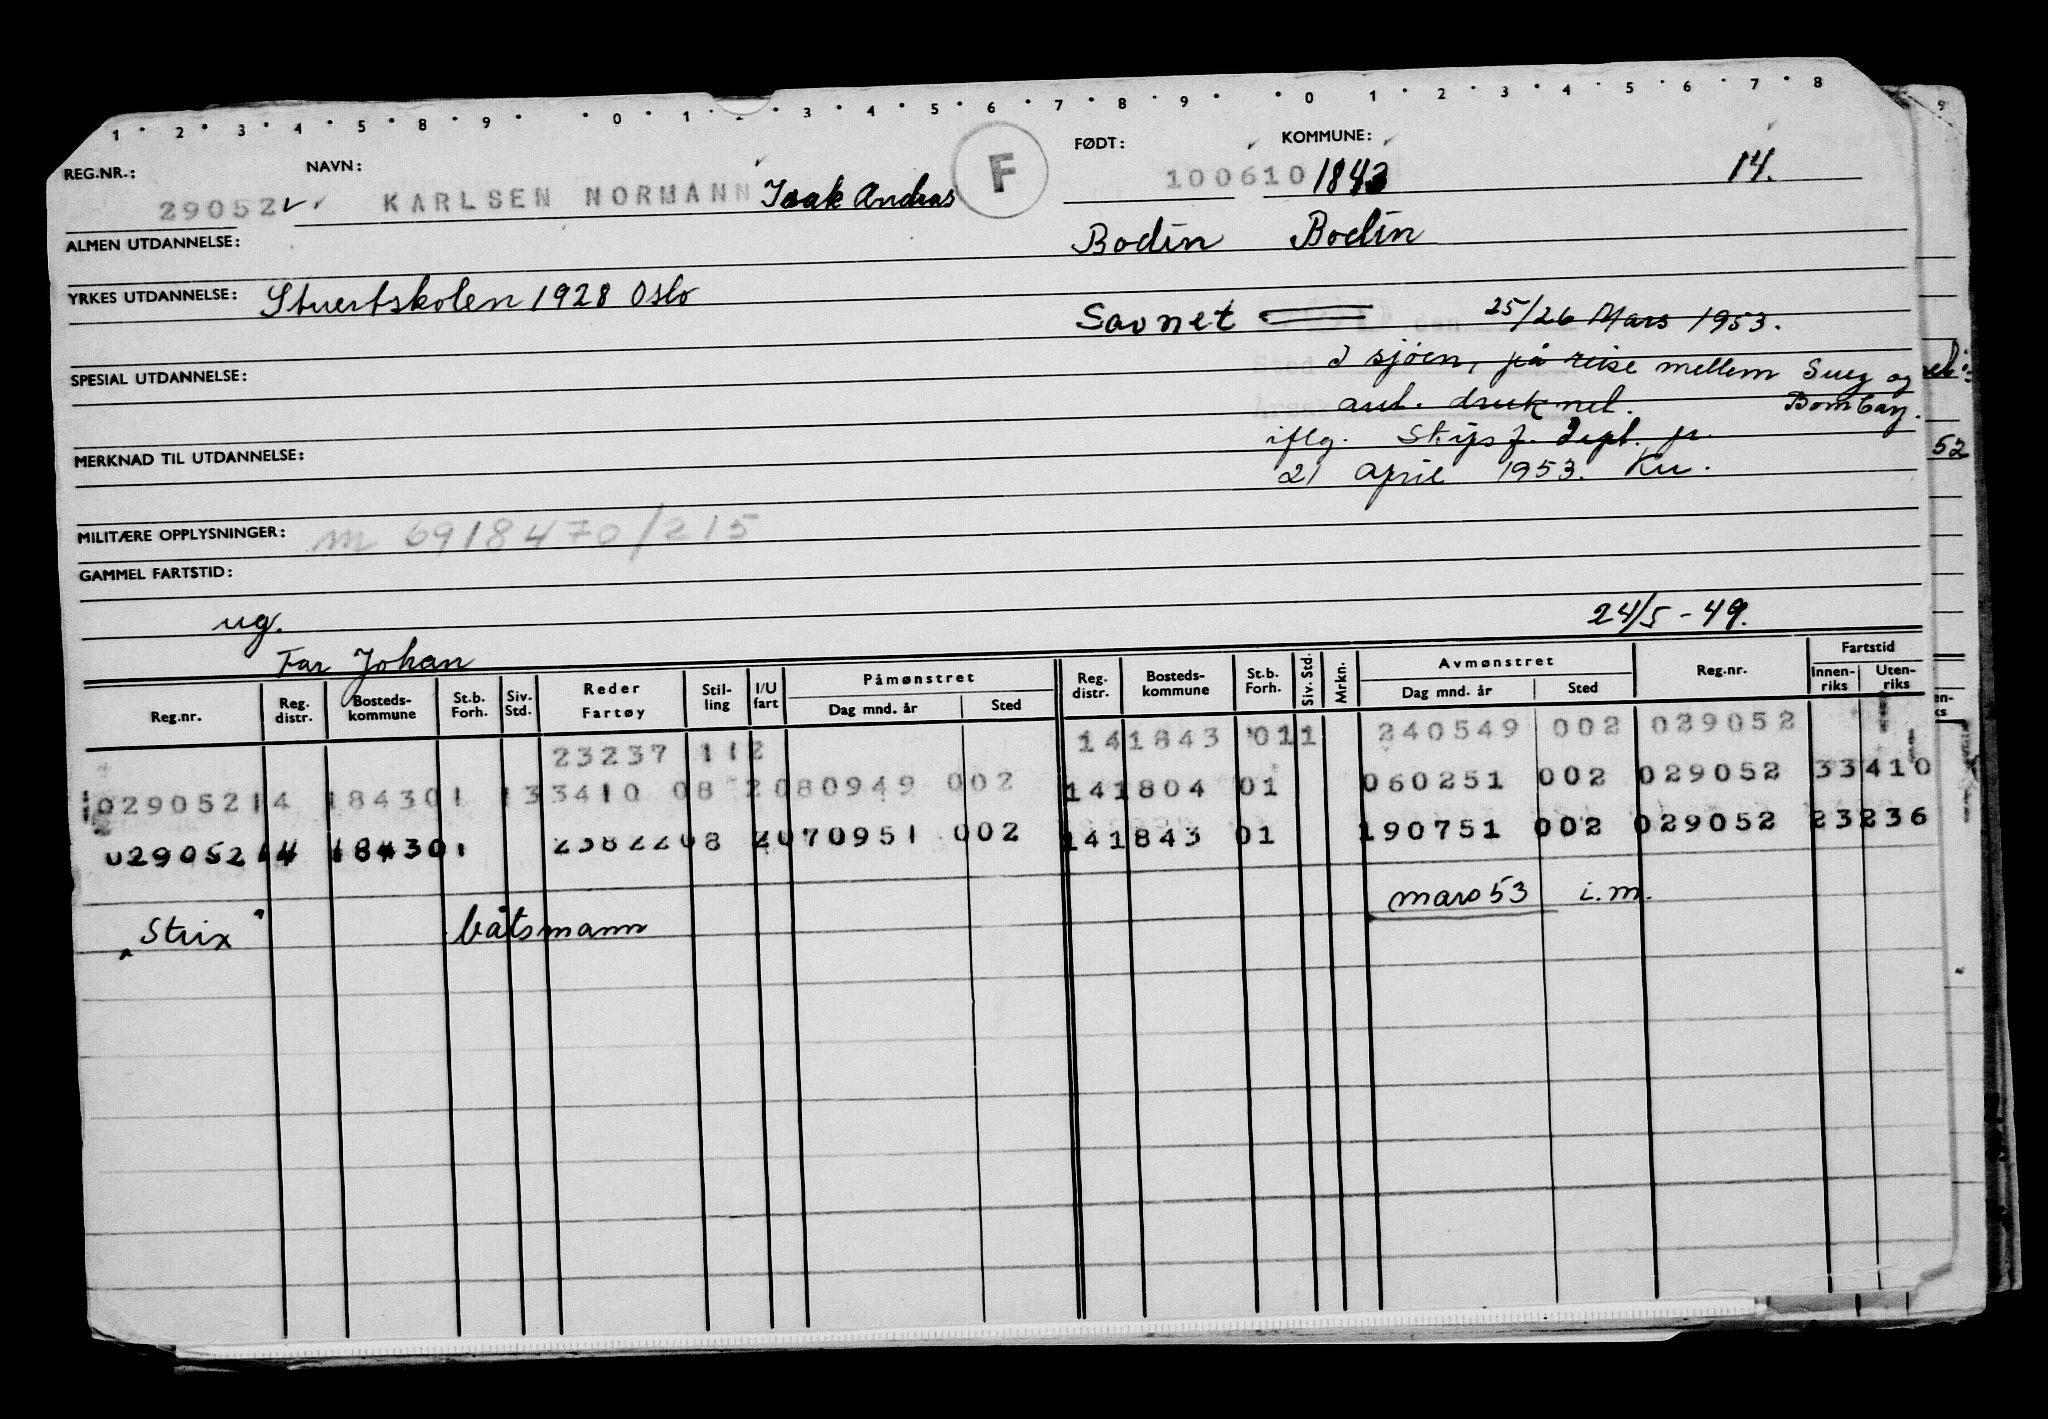 1 2 3 4 5 8 9 0 1 2 3 4 5 6 7 8 9 0 1 2 3 4 5 6 7 8
REG.NR.: NAVN: F FØDT: KOMMUNE:
29052 KARLSEN NORMANN Isak Andreas 100610 1843 14.
ALMEN UTDANNELSE: Bodin Bodin
YRKES UTDANNELSE: Stuertskolen 1928 Oslo
Savnet 25/26 Mars 1953.
SPESIAL UTDANNELSE: i sjøen, på reise mellem Suez og
ant. druknet. Bombay.
MERKNAD TIL UTDANNELSE: iflg. Skipsf. Dept. pr.
21 april 1953. Ku.
52
MILITÆRE OPPLYSNINGER: m 6918470/215
GAMMEL FARTSTID:
ug. 24/5-49.
Far Johan
Reg.nr. Reg. distr. Bosteds- kommune St.b. Forh. Siv. Std. Reder Fartøy Stil- ling I/U fart Påmønstret Dag mnd. år Sted Reg. distr. Bosteds- kommune St.b. Forh. Siv. Std. Mrkn. Avmønstret Dag mnd. år Sted Reg.nr. Fartstid Innen- riks Uten- riks
23237 112 141843 011 240549 002 029052
029052 14 184301 133410 08 2080949 002 141804 01 060251 002 029052 33410
029052 14 184301 23822 08 2070951 002 141843 01 190751 002 029052 23236
"Strix" båtsmann mars 53 i.m.